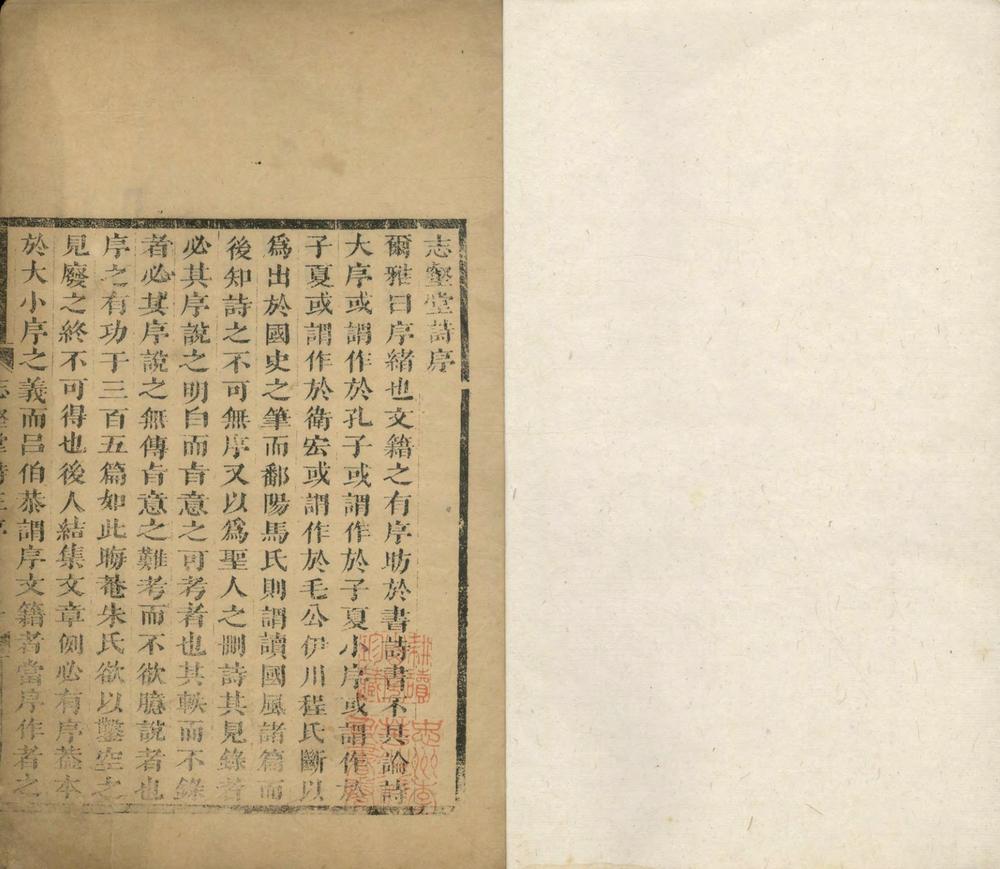 志壑堂詩序
爾雅曰序緒也文籍之有序昉於書詩書不具論詩
大序或謂作於孔子或謂作於子夏小序或謂作於
子夏或謂作於衛宏或謂作於毛公伊川程氏斷以
爲出於國史之筆而鄱陽馬氏則謂讀國風諸篇而
後知詩之不可無序又以爲聖人之刪詩其見錄者
必其序說之明白而旨意之可考者也其軼而不錄
者必其序說之無傳旨意之難考而不欲臆說者也
序之有功于三百五篇如此晦菴朱氏欲以鑿空之
見廢之終不可得也後人結集文章例必有序葢本
於大小序之義而呂伯恭謂序文籍者當序作者之
志壑堂詩序
耕讀
珍藏
忠州李